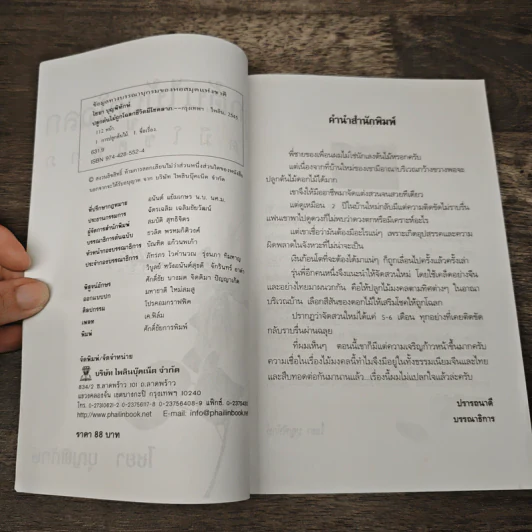 ข้อมูลทางบรรณานุกรมของหอสมุดแห่งชาติ
โชยา บุญพิทักษ์
ปลูกต้นไม้ถูกโฉลกชีวิตมีโชคลาภ.--กรุงเทพฯ: ไพลิน, 2543
112 หน้า
1. การปลูกต้นไม้. I. ชื่อเรื่อง.
ISBN 974-428-552-4
ที่ปรึกษากฎหมาย อนันต์ แย้มเกษร น.บ. นศ.ม.
ประธานกรรมการ ฉัตรเฉลิม เฉลิมชัยวัฒน์
ผู้จัดการสำนักพิมพ์ สมบัติ สุทธิจิตร
บรรณาธิการต้นฉบับ ธวัติ พรหมกิติวงศ์
หัวหน้ากองบรรณาธิการ บัณฑิต แก้วพนเก้า
ประจำกองบรรณาธิการ ภัทรภร ไวคำนวณ
พิสูจน์อักษร ศักดิ์ชัย
ออกแบบปก เตชาธาติ ใหม่สมสู่
ศิลปกรรม โปรคอมกราฟฟิค
เพลต เค.ฟิล์ม
พิมพ์ ศักดิ์ชัยการพิมพ์
จัดพิมพ์/จัดจำหน่าย
บริษัท ไพลินบุ๊คเน็ต จำกัด
834/2 ซ.ลาดพร้าว 101 ถ.ลาดพร้าว
แขวงคลองจั่น เขตบางกะปิ กรุงเทพฯ 10240
http://www.phailinbook.net E-mail: info@phailinbook.net
ราคา 88 บาท
คำนำสำนักพิมพ์
พี่ชายของเพื่อนผมไม่ใช่นักเลงต้นไม้หรอกครับ
แต่เนื่องจากที่บ้านใหม่ของเขามีอาณาบริเวณกว้างขวางพอจะ
ปลูกต้นไม้ดอกไม้ได้มาก
เขาจึงให้มืออาชีพมาจัดแต่งสวนจนสวยทีเดียว
แต่ดูเหมือน 2 ปีในบ้านใหม่กลับมีแต่ความติดขัดไม่ราบรื่น
แฟนเขาพาไปดูดวงก็ไม่พบว่าดวงตกหรือมีเคราะห์อะไร
แต่เขาเชื่อว่ามันต้องมีอะไรแน่ๆ เพราะเกิดอุปสรรคและความ
ผิดพลาดในจังหวะที่ไม่น่าจะเป็น
เงินก้อนโตที่จะต้องได้มาแน่ๆ ก็ถูกเลื่อนไปครั้งแล้วครั้งเล่า
รุ่นพี่อีกคนหนึ่งจึงแนะนำให้จัดสวนใหม่ โดยใช้เคล็ดอย่างจีน
และอย่างไทยมาผนวกกัน คือให้ปลูกไม้มงคลตามทิศต่างๆ ในอาณา
บริเวณบ้าน เลือกสีสันของดอกไม้ให้เสริมโชคให้ถูกโฉลก
ปรากฏว่าจัดสวนใหม่ได้แค่ 5-6 เดือน ทุกอย่างที่เคยติดขัด
กลับราบรื่นผ่านฉลุย
ที่ผมเห็นๆ ตอนนี้เขาก็มีแต่ความเจริญก้าวหน้าขึ้นมากครับ
ความเชื่อในเรื่องไม้มงคลนี้ทำไมจึงมีอยู่ในทั้งธรรมเนียมจีนและไทย
และสืบทอดต่อกันมานานแล้ว...เรื่องนี้ผมไม่แปลกใจแล้วล่ะครับ
ปรารถนาดี
บรรณาธิการ